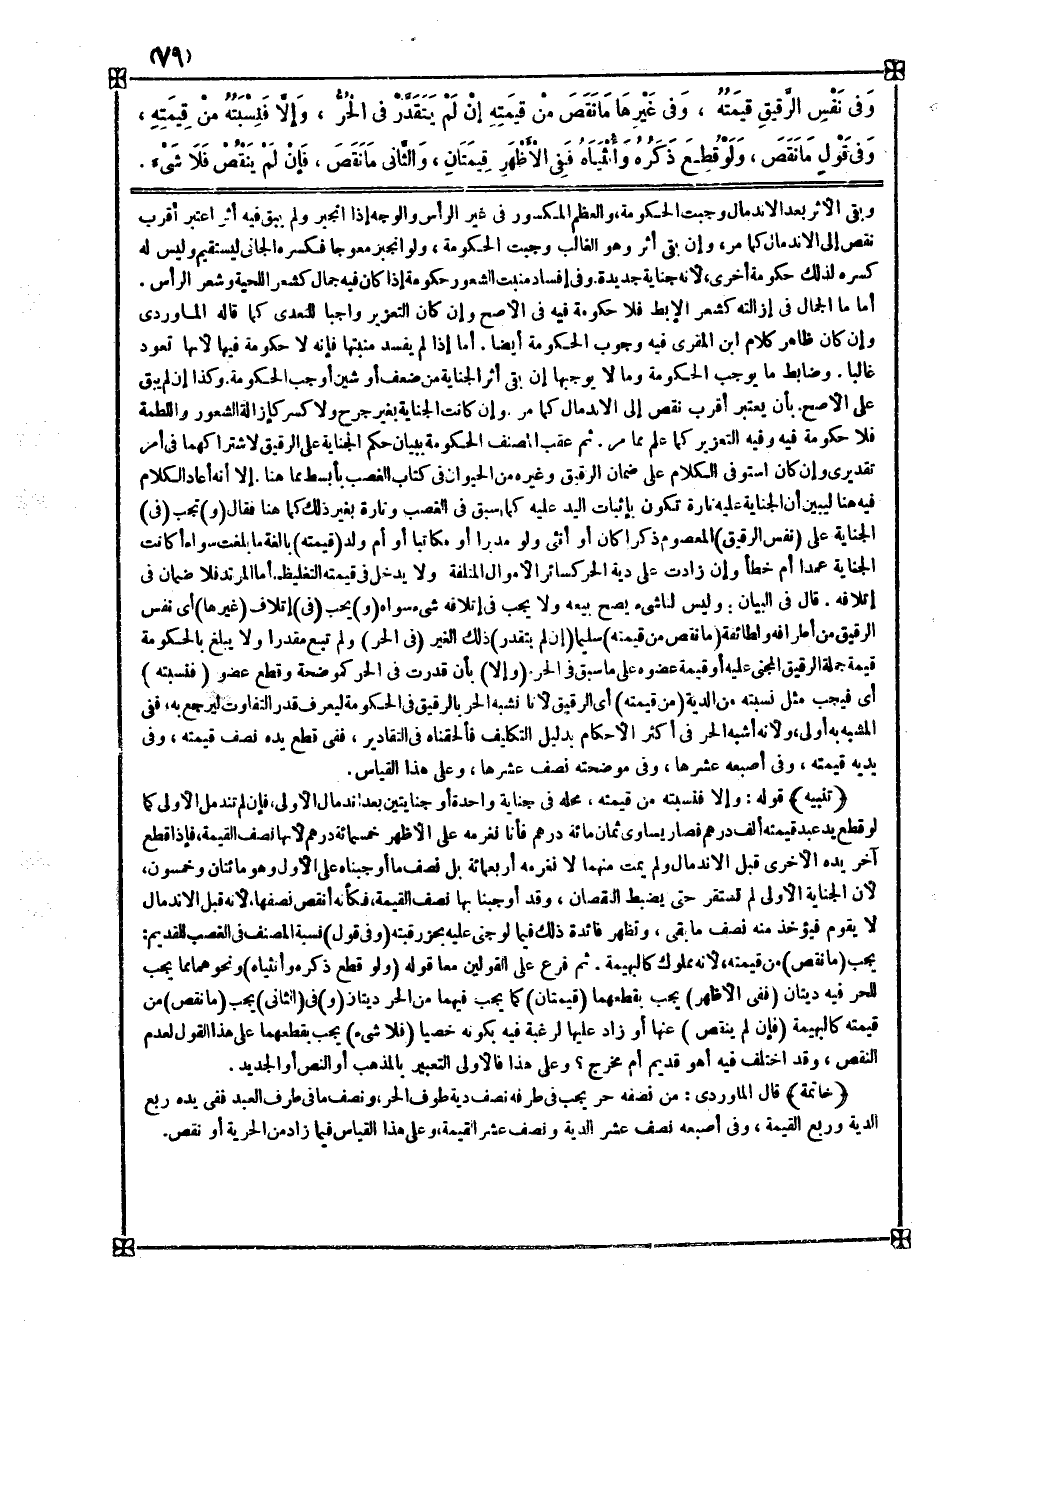 (٧٩)
وَفى نَفْسِ الرَّقيقِ قيمَتُهُ ، وَفى غَيْرِهَا مَا نَقَصَ مِنْ قيمَتِهِ إنْ لَمْ يَتَقَدَّرْ فى الْحُرِّ ، وَإلَّا فَنِسْبَتُهُ مِنْ قِيمَتِهِ ،
وَفى قَوْلٍ مَا نَقَصَ ، وَلَوْ قُطِعَ ذَكَرُهُ وَأُنْثَيَاهُ فَفِى الْأَظْهَرِ قِيمَتَانِ ، وَالثَّانى مَا نَقَصَ ، فَإنْ لَمْ يَنْقُصْ فَلَا شَىْءَ .
وبقى الأثر بعد الاندمال وجبت الحكومة، والعظم المكسور فى غير الرأس والوجه إذا انجبر ولم يبق فيه أثر اعتبر أقرب
نقص إلى الاندمال كما مر، وإن بقى أثر وهو الغالب وجبت الحكومة ، ولو انجبر معوجا فكسره الجانى ليستقيم وليس له
كسره لذلك حكومة أخرى، لأنه جناية جديدة. وفى إفساد منبت الشعور حكومة إذا كان فيه جمال كشعر اللحية وشعر الرأس .
أما ما الجمال فى إزالته كشعر الإبط فلا حكومة فيه فى الأصح وإن كان التعزير واجبا للتعدى كما قاله الماوردى
وإن كان ظاهر كلام ابن المقرى فيه وجوب الحكومة أيضا . أما إذا لم يفسد منبتها فإنه لا حكومة فيها لأنها تعود
غالبا . وضابط ما يوجب الحكومة وما لا يوجبها إن بقى أثر الجناية من ضعف أو شين أوجب الحكومة. وكذا إن لم يبق
على الأصح. بأن يعتبر أقرب نقص إلى الاندمال كما مر . وإن كانت الجناية بغير جرح ولا كسر كإزالة الشعور واللطمة
فلا حكومة فيه وفيه التعزير كما علم مما مر . ثم عقب المصنف الحكومة ببيان حكم الجناية على الرقيق لاشتراكهما فى أمر
تقديرى وإن كان استوفى الكلام على ضمان الرقيق وغيره من الحيوان فى كتاب الغصب بأبسط مما هنا . إلا أنه أعاد الكلام
فيه هنا ليبين أن الجناية عليه تارة تكون بإثبات اليد عليه كما سبق فى الغصب وتارة بغير ذلك كما هنا فقال (و) تجب (فى)
الجناية على (نفس الرقيق) المعصوم ذكرا كان أو أنثى ولو مدبرا أو مكاتبا أو أم ولد (قيمته) بالغة ما بلغت سواء أكانت
الجناية عمدا أم خطأ وإن زادت على دية الحر كسائر الأموال المتلفة ولا يدخل فى قيمته التغليظ. أما المرتد فلا ضمان فى
إتلافه . قال فى البيان : وليس لنا شىء يصح بيعه ولا يجب فى إتلافه شىء سواه (و) يجب (فى) إتلاف (غيرها) أى نفس
الرقيق من أطرافه ولطائفه (ما نقص من قيمته) سليما (إن لم يتقدر) ذلك الغير (فى الحر) ولم تتبع مقدرا ولا يبلغ بالحكومة
قيمة جملة الرقيق المجنى عليه أو قيمة عضوه على ما سبق فى الحر. (وإلا) بأن قدرت فى الحر كموضحة وقطع عضو (فنسبته)
أى فيجب مثل نسبته من الدية (من قيمته) أى الرقيق لأنا نشبه الحر بالرقيق فى الحكومة ليعرف قدر التفاوت ليرجع به، ففى
المشبه به أولى، ولأنه أشبه الحر فى أكثر الأحكام بدليل التكاليف فألحقناه فى التقادير ، ففى قطع يده نصف قيمته ، وفى
يديه قيمته ، وفى أصبعه عشرها ، وفى موضحته نصف عشرها ، وعلى هذا القياس.
﴿تنبيه﴾ قوله : وإلا فنسبته من قيمته ، محله فى جناية واحدة أو جنايتين بعد اندمال الأولى، فإن لم تندمل الأولى كما
لو قطع يد عبد قيمته ألف درهم فصار يساوى ثمان مائة درهم فأنا نغرمه على الأظهر خمسمائة درهم لأنها نصف القيمة، فإذا قطع
آخر يده الأخرى قبل الاندمال ولم يمت منهما لا نغرمه أربعمائة بل نصف ما أوجبناه على الأول وهو مائتان وخمسون،
لأن الجناية الأولى لم تستقر حتى يضبط النقصان ، وقد أوجبنا بها نصف القيمة، فكأنه أنقص نصفها، لأنه قبل الاندمال
لا يقوم فيؤخذ منه نصف ما بقى ، وتظهر فائدة ذلك فيما لو جنى عليه بحز رقبته (وفى قول) نسبة المصنف فى الغصب للقديم:
يجب (ما نقص) من قيمته، لأنه مملوك كالبهيمة . ثم فرع على القولين معا قوله (ولو قطع ذكره وأنثياه) ونحوهما مما يجب
للحر فيه ديتان (ففى الأظهر) يجب بقطعهما (قيمتان) كما يجب فيهما من الحر ديتان (و) فى (الثانى) يجب (ما نقص) من
قيمته كالبهيمة (فإن لم ينقص) عنها أو زاد عليها لرغبة فيه بكونه خصيا (فلا شىء) يجب بقطعهما على هذا القول لعدم
النقص ، وقد اختلف فيه أهو قديم أم مخرج ؟ وعلى هذا فالأولى التعبير بالمذهب أو النص أو الجديد .
﴿خاتمة﴾ قال الماوردى : من نصفه حر يجب فى طرفه نصف دية طرف الحر، ونصف ما فى طرف العبد ففى يده ربع
الدية وربع القيمة ، وفى أصبعه نصف عشر الدية ونصف عشر القيمة، وعلى هذا القياس فيما زاد من الحرية أو نقص.